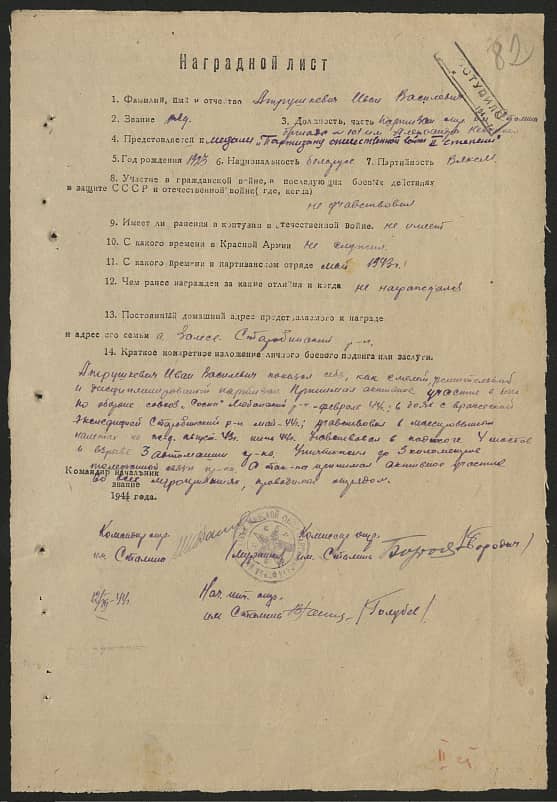 82
ПОСТУПИЛО
Наградной лист
1. Фамилия, имя и отчество Апрушкевич Иван Васильевич
2. Звание ряд. 3. Должность, часть партизан отр. им. Сталина
бригада № 101 им. Александра Невского
4. Представляется к медали „Партизану отечественной войны II степени"
5. Год рождения 1923 6. Национальность белорус 7. Партийность Влксм.
8. Участие в гражданской войне, в последующих боевых действиях
в защите СССР и отечественной войне (где, когда)
не участвовал
9. Имеет ли ранения и контузии в отечественной войне. не имеет
10. С какого времени в Красной Армии Не служил.
11. С какого времени в партизанском отряде май 1943 г.
12. Чем ранее награжден за какие отличия и когда не награждался
13. Постоянный домашний адрес представляемого к награде
и адрес его семьи д. Залесе Старобинский р-н.
14. Краткое конкретное изложение личного боевого подвига или заслуги.
Апрушкевич Иван Васильевич показал себя, как смелый, решительный
и дисциплинированный партизан. Принимал активное участие в бою
по обороне совхоз. „Сосны" Любанский р-н - февраль 44г.; в боях с вражеской
экспедицией Старобинский р-н май - 44г.; участвовал в массированном
налете на ж.д. август 43. июнь 44г. Участвовал в поджоге 4 мостов
и взрыве 3 автомашин пр-ка. Уничтожил до 3 километров
телефонной связи пр-ка. А так-же принимал активное участие
во всех мероприятиях, проводимых отрядом.
Командир начальник
звание
1944 года.
Командир отр.
им Сталина
Комиссар отр.
им. Сталина /Бородич/
12/XI-44г.
Нач. шт. отр.
им Сталина /Голубев/
II ст